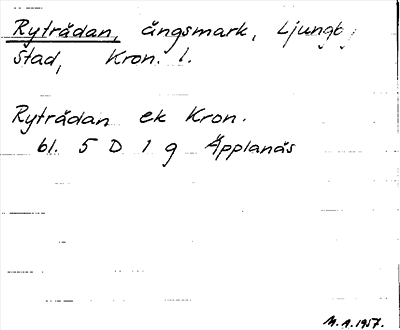 Rytrådan, ängsmark, Ljungby
stad, Kron. l.
Rytrådan ek Kron.
bl. 5 D 1 g Äpplanäs
M.A. 1957.